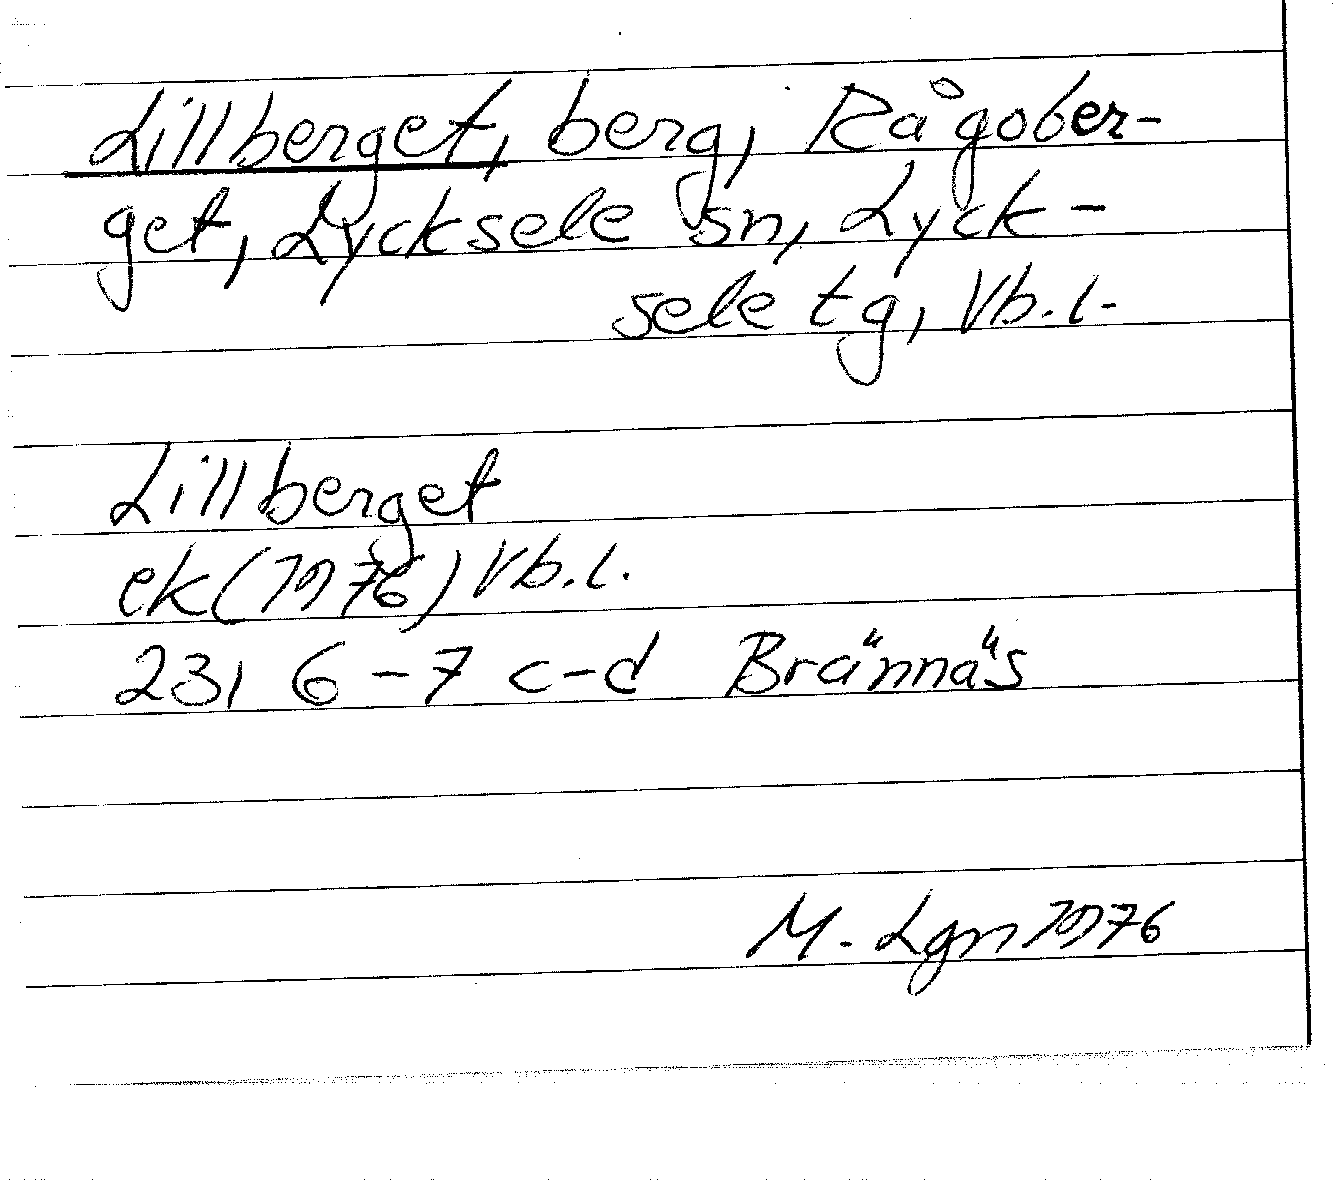 Lillberget, berg, Rågober-
get, Lycksele sn, Lyck-
sele tg, Vb.l.
Lillberget
ek(1976) Vb.l.
23I 6-7 c-d Brännäs
M. Lgn 1976